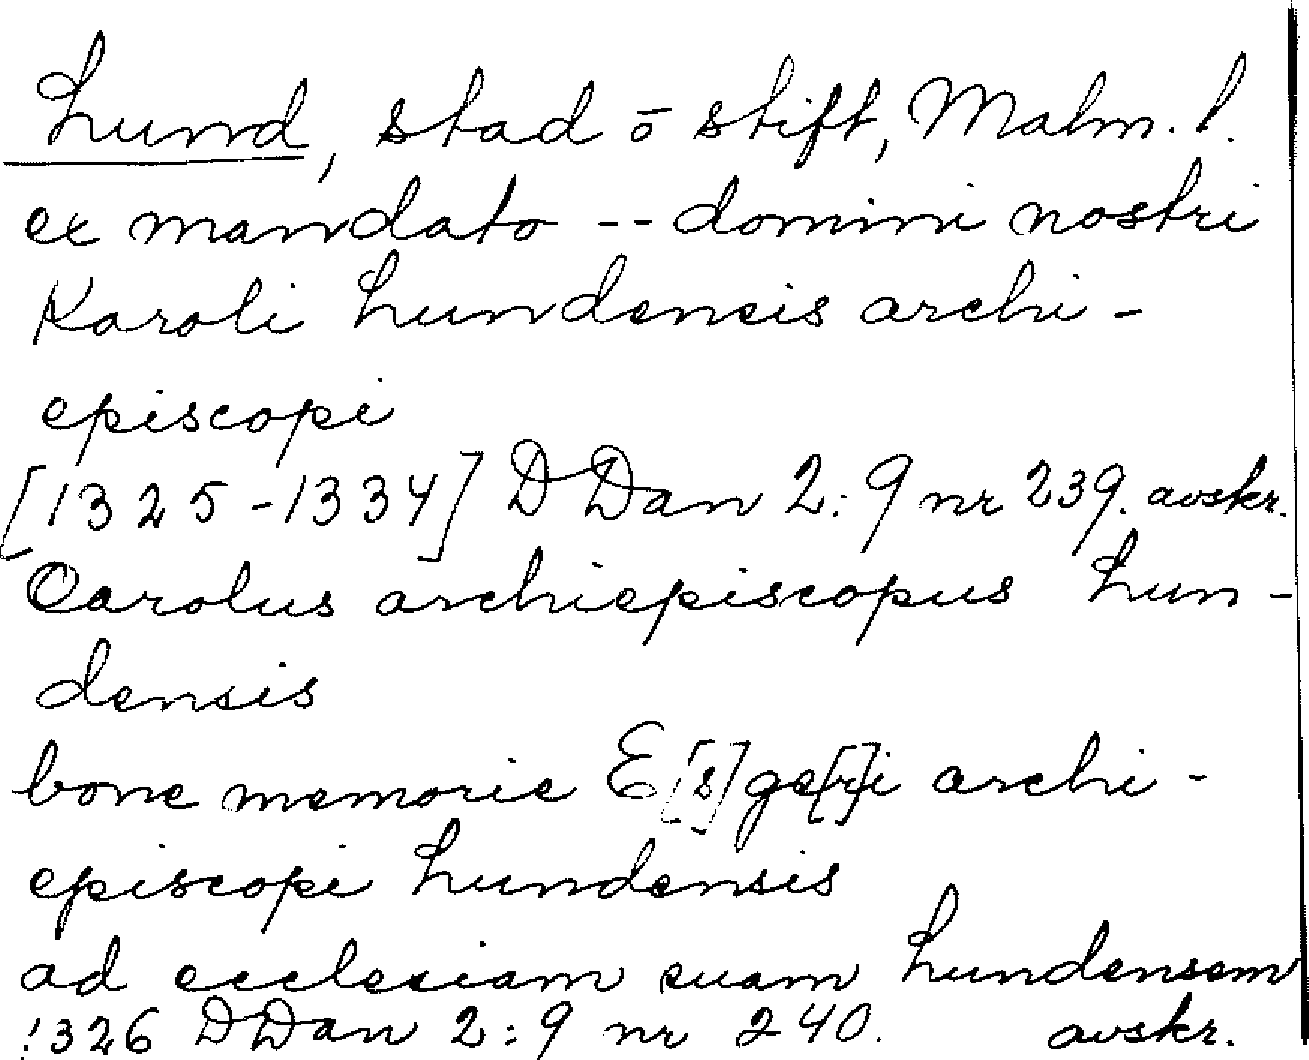 Lund, stad o stift, Malm. l.
ex mandato -- domini nostri
Karoli Lundensis archi-
episcopi
[1325-1334] DDan 2:9 nr 239. avskr.
Carolus archiepiscopus Lun-
densis
bone memorie E[s]ge[r]i archi-
episcopi Lundensis
ad ecclesiam suam Lundensem
1326 DDan 2:9 nr 240. avskr.